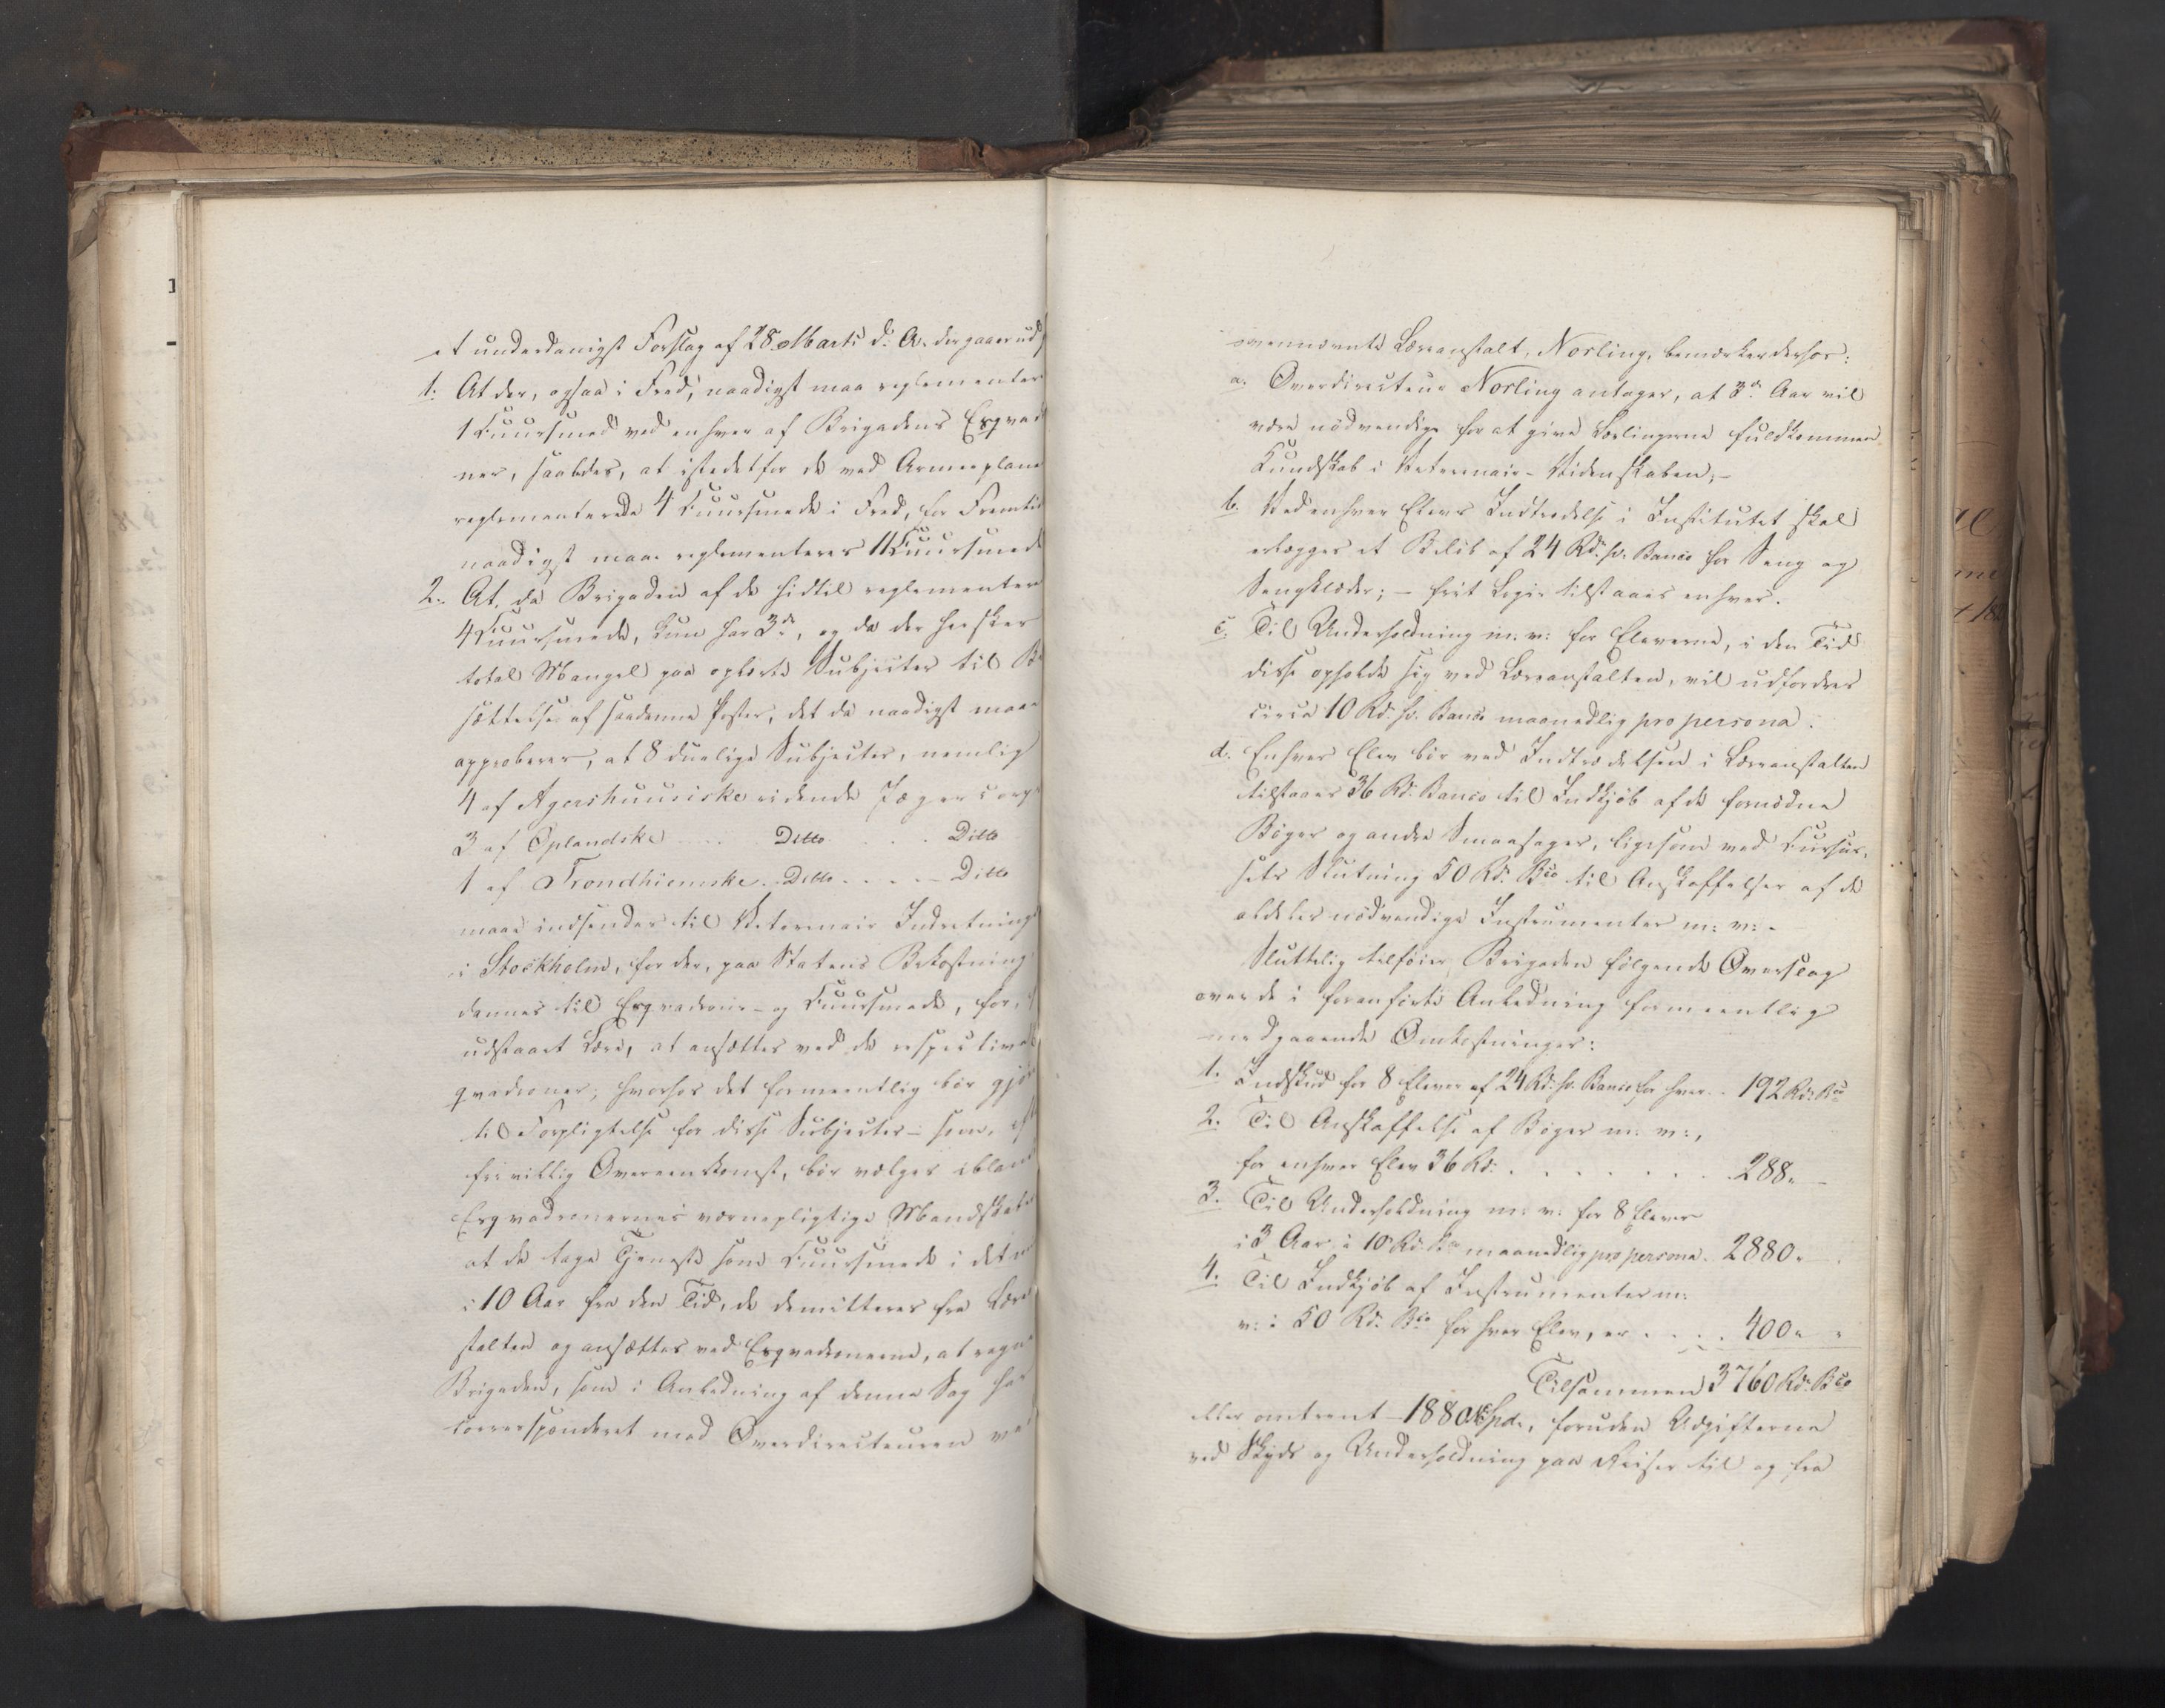 et underdanigst Forslag af 28 Marts d: A. der gaaer ud
1. At der, ogsaa i Fred, naadigst maa reglementer
1 Cuursmed ved enhver af Brigadens Esqvad
ner, saaledes, at istedetfor de ved Armeeplane
reglementerede 4 Cuursmede i Fred, for Fremtid
naadigst maae reglementeres 11 Cuursmede
2. At, da Brigaden af de hidtil reglementere
4 Cuursmede, kun har 3de, og da der hersker
total Mangel paa oplærte Subjecter til Be
sættelse af saadanne Poster, det da naadigst maae
approberes, at 8 duelige Subjecter, nemlig
4 af Agershuusiske ridende Jægercorps
3 af Oplandske .... Ditto .... Ditto
1 af Trondhiemske .. Ditto .... Ditto
maae indsendes til Veterinair Indretning
i Stockholm, for der, paa Statens Bekostning
dannes til Esqvadrons- og Cuursmede, for,
udstaaet Lære, at ansættes ved de respective
qvadroner; hvorhos det formeentlig bør gjør
til Forpligtelse for disse Subjecter – som, eft
frivillig Overeenkomst, bør vælges iblan
Esqvadronernes værnepligtige Mandskab
at de tage Tjeneste som Cuursmede i det m
i 10 Aar fra den Tid, de demitteres fra Lærean
stalten og ansættes ved Esqvadronerne, at regn
Brigaden, som i Anledning af denne Sag har
correspondert med Overdirecteuren ved
ovennævnte Læreanstalt, Norling, bemærker derhos:
a. Overdirecteur Norling antager, at 3de Aar vil
være nödvendige for at give Lærlingerne fuldkommen
Kundskab i Veterinair-Videnskaben; –
b. Ved enhver Elevs Indtrædelse i Institutet skal
erlægges et Belöb af 24 Rd. sv. Banco for Seng og
Sengklæder; – frit Logie tilstaaes enhver.
c. Til Underholdning m: v: for Eleverne, i den Tid
disse opholde sig ved Læreanstalten, vil udfordres
circa 10 Rd. sv. Banco maanedlig pro persona.
d. Enhver Elev bör ved Indtrædelsen i Læreanstalten
tilstaaes 36 Rd. Banco til Indkjöb af de fornödne
Böger og andre Smaasager, ligesom ved Cursus,
sets Slutning 50 Rd. Bco til Anskaffelser af de
aldeles nödvendige Instrumenter m: v: –
Sluttelig tilföier Brigaden fölgende Overslag
over de i foranförte Anledning formeentlig
medgaaende Omkostninger:
1. Indskud for 8 Elever af 24 Rd. sv. Banco for hver .. 192 Rd. Bco
2. Til Anskaffelse af Böger m: v:,
for enhver Elev 36 Rd. . . . . . . . . 288 „ –
3. Til Underholdning m: v: for 8 Elever
i 3 Aar à 10 Rd. Bco maanedlig pro persona . 2880 „ – .
4. Til Indkjöb af Instrumenter m:
v: à 50 Rd. Bco for hver Elev, er . . . . 400 „ „
Tilsammen 3760 Rd. Bco
eller omtrent – 1880 Spd., foruden Udgifterne
ved Skyds og Underholdning paa Reiser til og fra